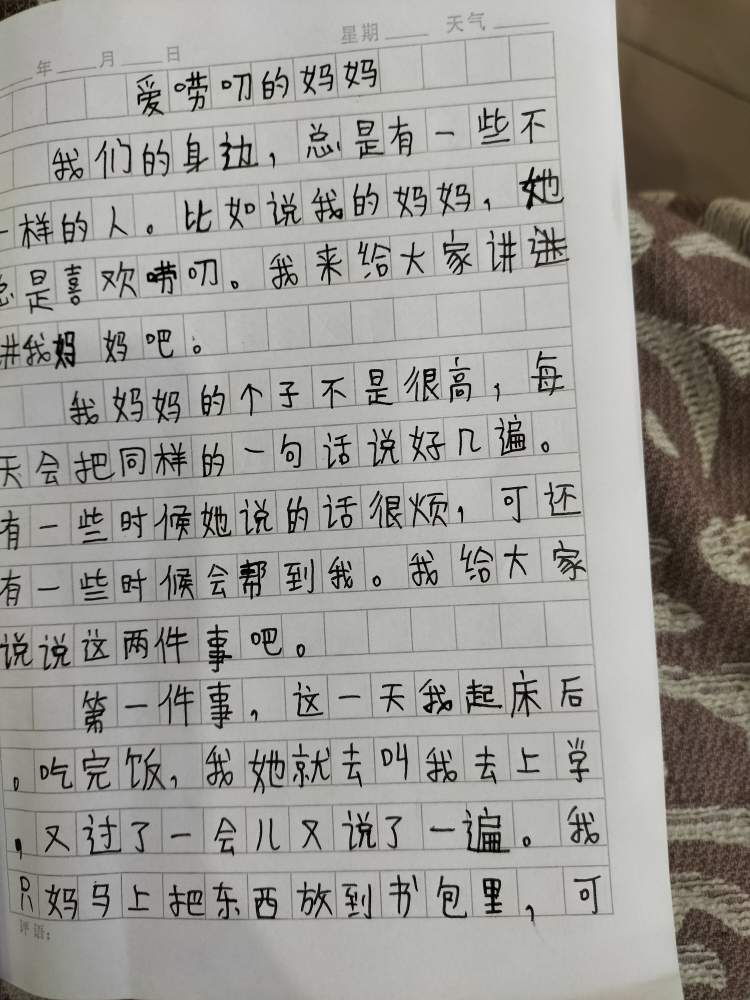 年 月 日 星期 天气
爱唠叨的妈妈
我们的身边，总是有一些不
一样的人。比如说我的妈妈，她
总是喜欢唠叨。我来给大家讲
讲我妈妈吧。
我妈妈的个子不是很高，每
天会把同样的一句话说好几遍。
有一些时候她说的话很烦，可还
有一些时候会帮到我。我给大家
说说这两件事吧。
第一件事，这一天我起床后
。吃完饭，我她就去叫我去上学
，又过了一会儿又说了一遍。我
只妈马上把东西放到书包里，可
评语：